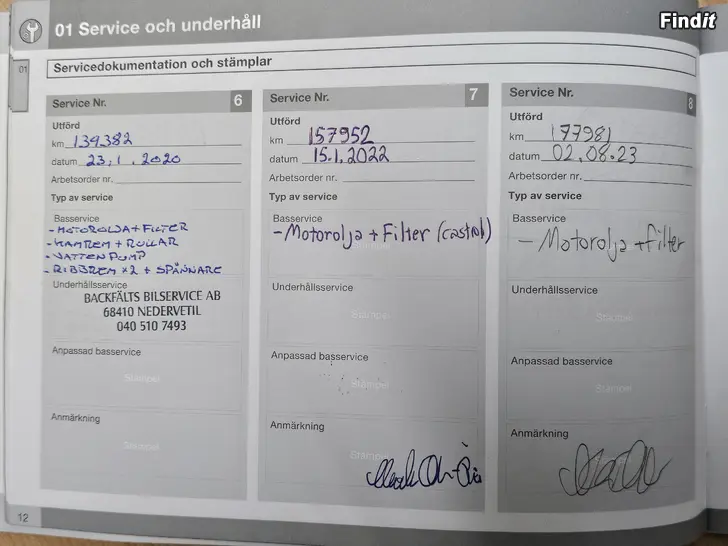 Findit
01 Service och underhåll
01
Servicedokumentation och stämplar
Service Nr. 6
Utförd
km 134382
datum 23.1.2020
Arbetsorder nr.
Typ av service
Basservice
- MOTOROLJA + FILTER
- KAMREM + RULLAR
- VATTENPUMP
- RIBBREM x2 + SPÄNNARE
Underhållsservice
BACKFÄLTS BILSERVICE AB
68410 NEDERVETIL
040 510 7493
Anpassad basservice
Stämpel
Anmärkning
Stämpel
Service Nr. 7
Utförd
km 157952
datum 15.1.2022
Arbetsorder nr.
Typ av service
Basservice
- Motorolja + Filter (castrol)
Underhållsservice
Stämpel
Anpassad basservice
Stämpel
Anmärkning
Stämpel
Service Nr. 8
Utförd
km 177981
datum 02.08.23
Arbetsorder nr.
Typ av service
Basservice
- Motorolja + filter
Underhållsservice
Stämpel
Anpassad basservice
Stämpel
Anmärkning
12